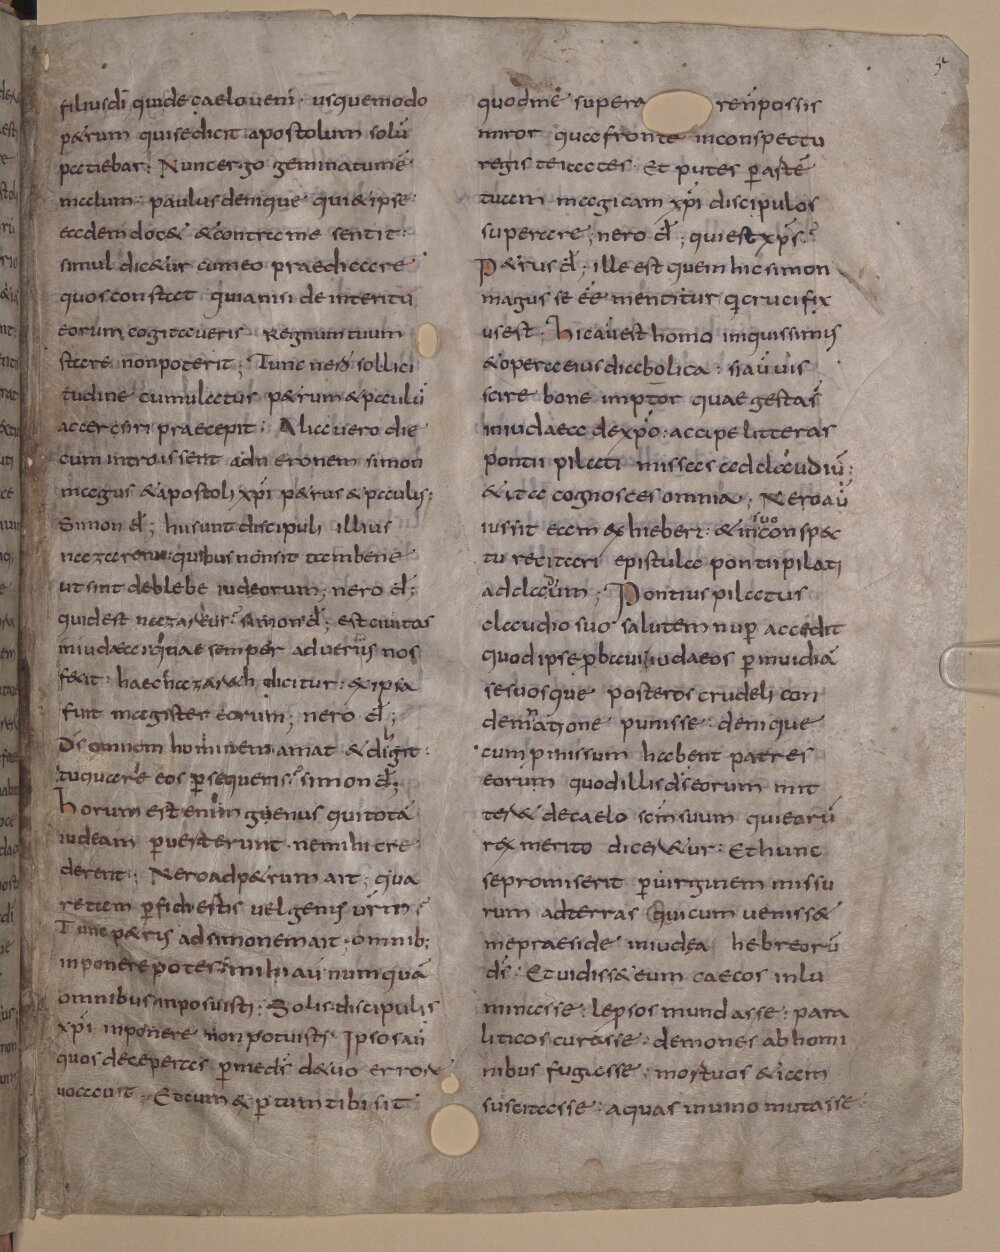 5
filiusdi quide caeloueni · usquemodo
petrum quisedicit apostolum solū
patiebar : Nunc ergo geminatumē
malum : paulus denique qui & ipse
eadem doc& & contra me sentit :
simul dic&ur cum eo praedicare
quos constat quia nisi de interitu
eorum cogitaueris regnum tuum
stare non poterit ; Tunc nero sollici
tudine cumulatus p&rum & paulū
accersiri praecepit : Alia uero die
cum introissent ad neronem simon
magus & apostoli xpi p&rus & paulus :
Simon d̄ ; hi sunt discipuli illius
nazareni quibus non sit tam bene
ut sint deblebe iudeorum ; nero d̄ ;
quid est nazareus ? simon d̄ ; est ciuitas
in iudaea quae semper aduersus nos
fecit : haec nazareth dicitur : & ipsa
fuit magister eorum ; nero d̄ ;
Ds omnem hominem amat & diligit :
tu quare eos psequeris ? simon d̄ ;
horum est enim genus qui totā
iudeam puerterunt · ne mihi cre
derent ; Nero ad p&rum ait ; qua
re tam pfidi estis uel genus urm ?
Tunc p&rus ad simonem ait · omnib ;
inponere potes · mihi au numquā
omnibus inposuisti : Solis discipulis
xpi inponere non potuisti · Ipsos aū
quos deceperas p me ds de tuo errore
uocauit : Et cum exptum tibi sit
quod me supera re n possis
miror qua fronte in conspectu
regis te iactes · Et putes p astē
tuam magicam xpi discipulos
superare ; nero d̄ ; qui est xps ?
P&rus d̄ ; ille est quem hic simon
magus se ēē mentitur qi crucifix
us est : hic aū est homo iniquissimus
& opera eius diabolica : si aū uis
scire bone imptor quae gesta s̄
in iudaea de xpo : accipe litteras
pontii pilati missas ad claudiū :
& ita cognosces omnia ; Nero aū
iussit eam exhieberi : & in suo conspec
tu recitari epistula pontii pilati
ad claudium ; Pontius pilatus
claudio suo salutem nup accedit
quod ipse pbaui iudaeos p inuidiā
se suosque posteros crudeli con
demnatione punisse : denique
cum pmissum habent patres
eorum quod illis ds eorum mit
ter& de caelo scm suum qui eorū
rex merito diceretur : Et hunc
se promiserit p uirginem missu
rum ad terras Qui cum uenisset
me praeside in iudea hebreorū
ds : Et uidiss& eum caecos inlu
minasse : leprsos mundasse : para
liticos curasse : demones ab homi
nibus fugasse : mortuos & iam
suscitasse : aquas in uino mutasse :